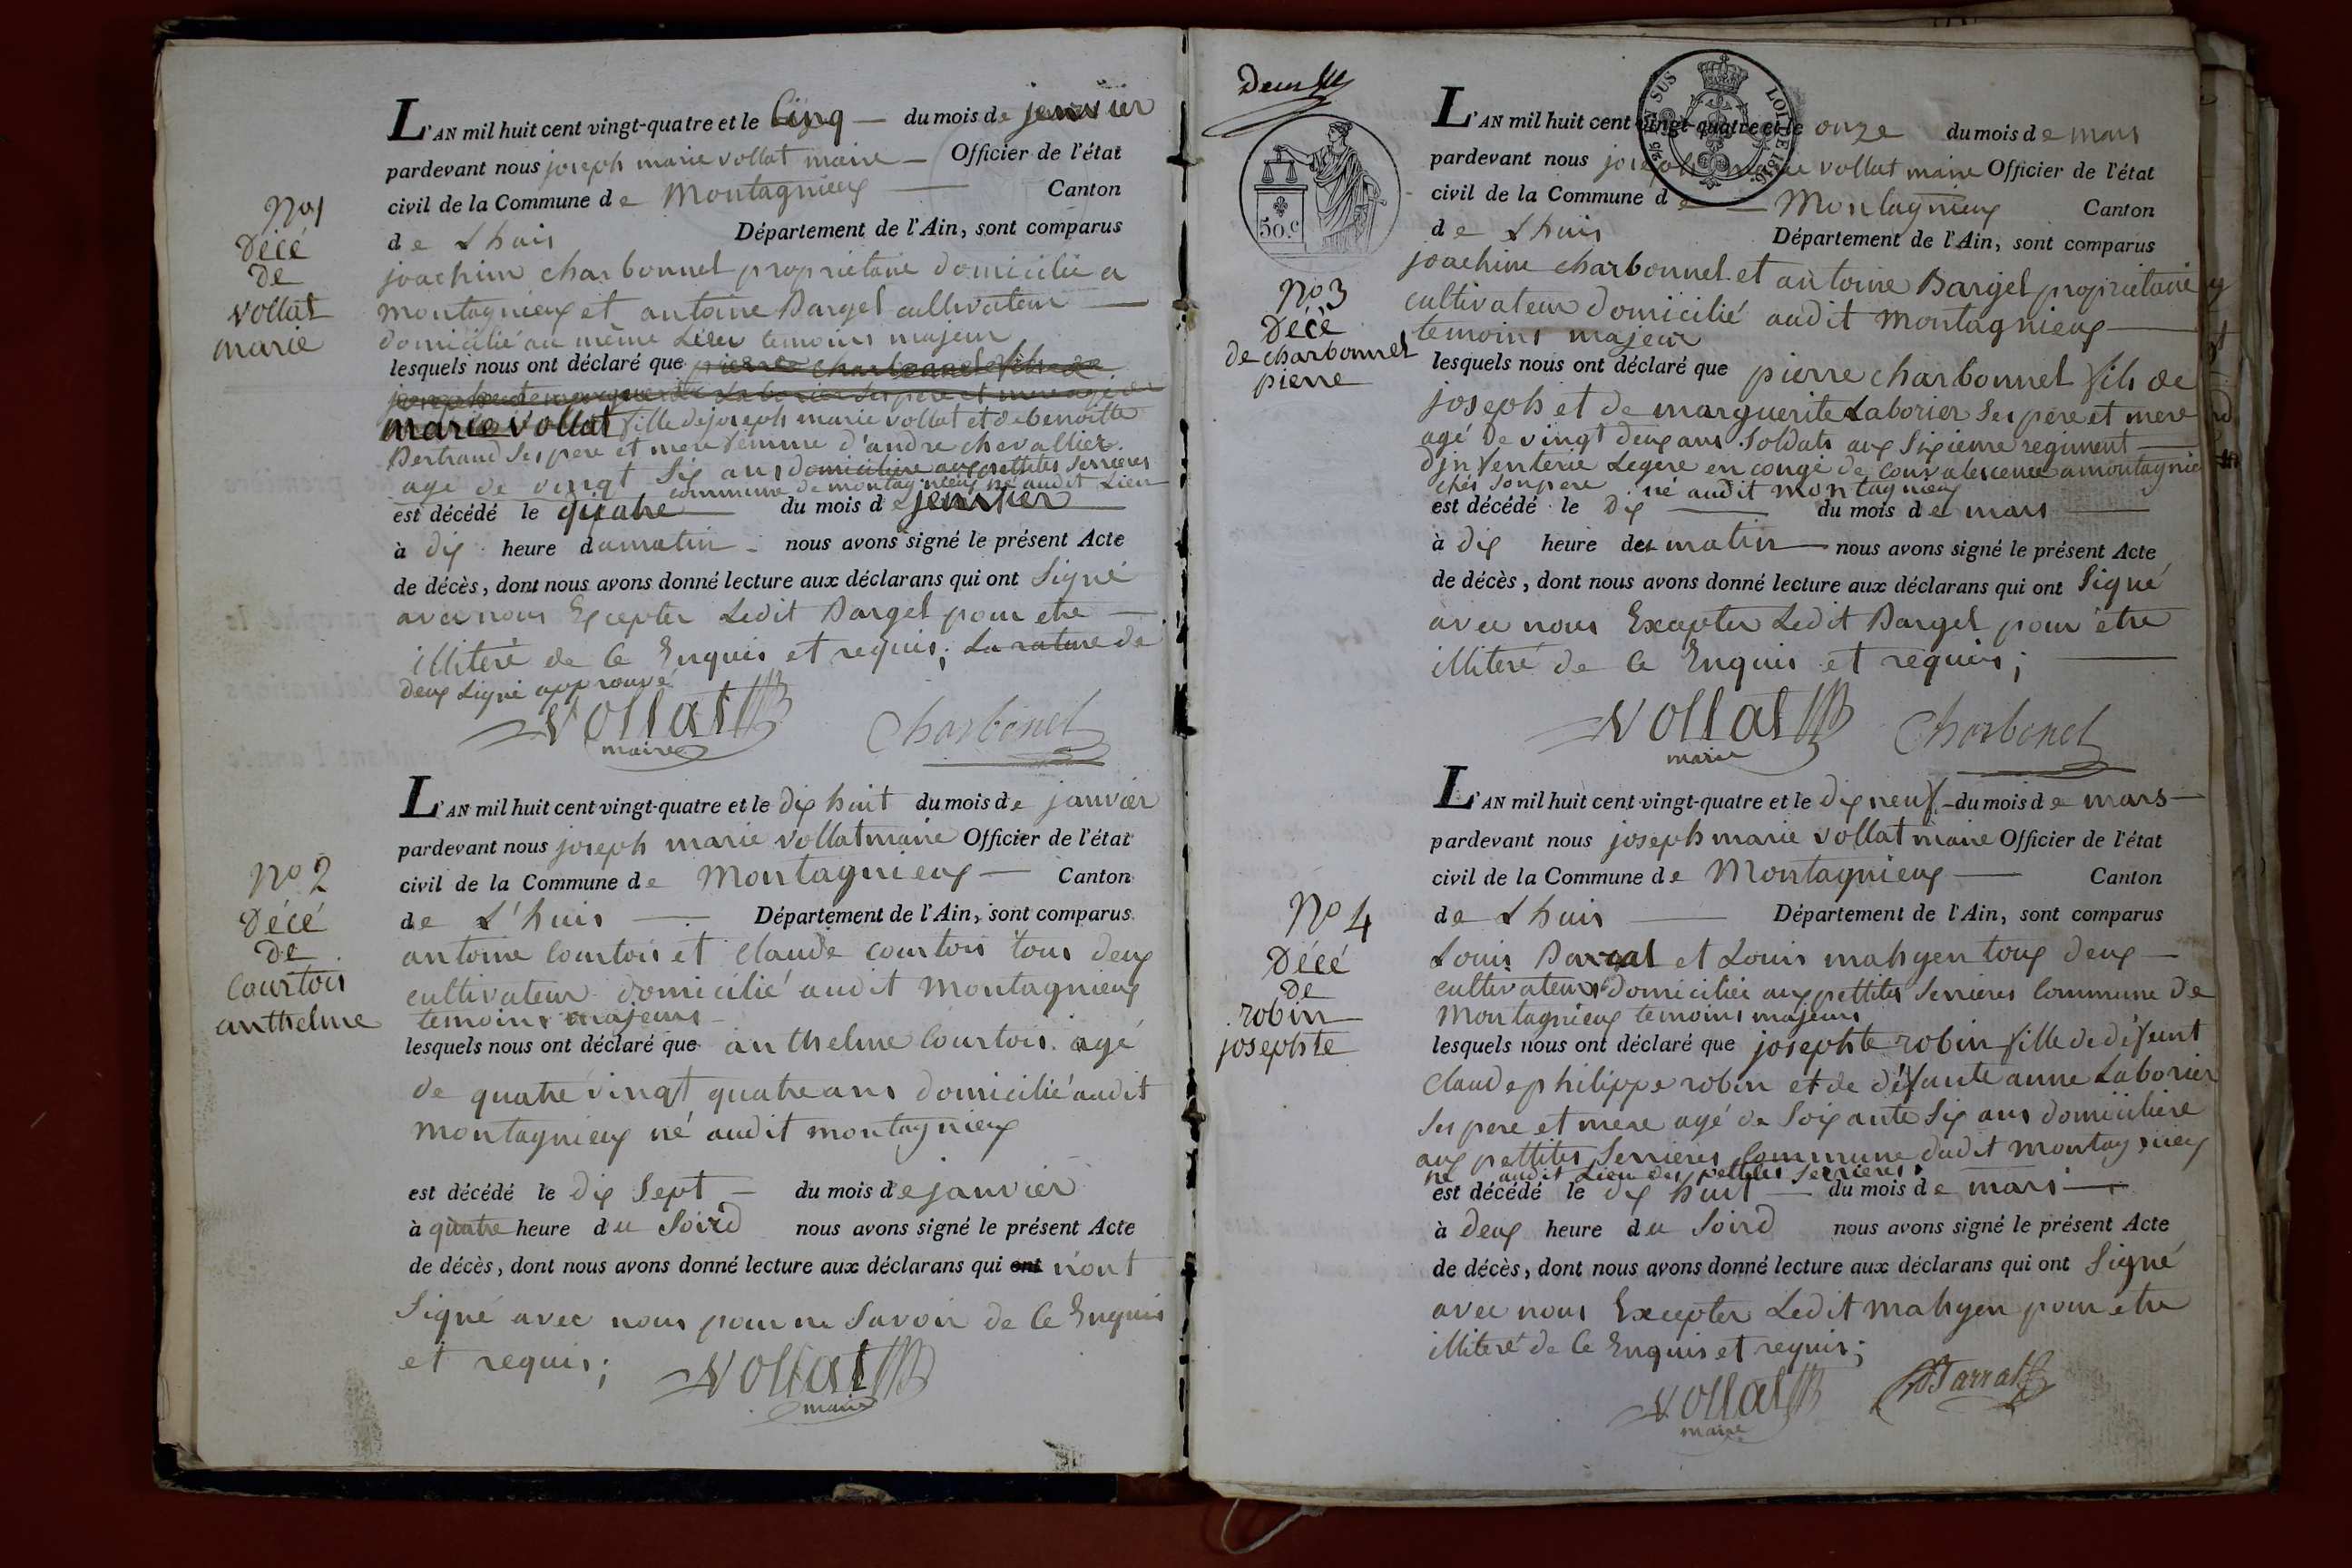 No 1
Décé
de
vollat
marie
L'AN mil huit cent vingt-quatre et le Cinq — du mois de janvier
pardevant nous joseph marie vollat maire — Officier de l'état
civil de la Commune de Montagnieux — Canton
de Lhuis Département de l'Ain, sont comparus
joachim charbonnel proprietaire domicilié a
montagnieux et antoine Darget cultivateur —
domicilié au même Lieu temoins majeur
lesquels nous ont déclaré que pierre charbonnel fils de
joseph et de marguerite Laborier ses pere et mere agé de
marie vollat fille de joseph marie vollat et de benoitte
Bertrand ses pere et mere femme d'andre chevallier
agé de vingt Six ans domiciliere aux pettites Serrieres
commune de montagnieux né audit Lieu
est décédé le quatre — du mois de janvier
à dix heure du matin — nous avons signé le présent Acte
de décès, dont nous avons donné lecture aux déclarans qui ont Signé
avec nous Excepter Ledit Darget pour etre —
illiteré de Ce Enquis et requis; La rature de
deux Ligne approuvé
vollat
maire
Charbonel
No 2
Décé
de
Courtois
anthelme
L'AN mil huit cent vingt-quatre et le dix huit du mois de janvier
pardevant nous joseph marie vollat maire Officier de l'état
civil de la Commune de Montagnieux — Canton
de L'huis — Département de l'Ain, sont comparus
antoine Courtois et Claude Courtois tous deux
cultivateur domicilié audit Montagnieux
temoins majeurs
lesquels nous ont déclaré que anthelme Courtois agé
de quatre vingt quatre ans domicilié audit
montagnieux né audit montagnieux
est décédé le dix Sept — du mois de janvier
à quatre heure du Soird nous avons signé le présent Acte
de décès, dont nous avons donné lecture aux déclarans qui ont n'ont
Signé avec nous pour ne Savoir de Ce Enquis
et requis;
vollat
maire
Deux
50.c
EN SUS
LOI DE 1816
No 3
Décè
de charbonnel
pierre
L'AN mil huit cent vingt-quatre et le onze du mois de mars
pardevant nous joseph marie vollat maire Officier de l'état
civil de la Commune de — Montagnieux Canton
de Lhuis Département de l'Ain, sont comparus
joachim charbonnel et antoine Darget proprietaire
cultivateur domicilié audit Montagnieux —
temoins majeur
lesquels nous ont déclaré que pierre charbonnel fils de
joseph et de marguerite Laborier Ses pere et mere
agé de vingt deux ans Soldats aux Sixieme regiment —
d'jnfenterie Legere en congé de convalescence a montagnie
chés son pere né audit montagnieux
est décédé le dix — du mois de mars —
à dix heure du matin — nous avons signé le présent Acte
de décès, dont nous avons donné lecture aux déclarans qui ont Signé
avec nous Excepter Ledit Darget pour être
illiteré de Ce Enquis et requis; —
vollat
maire
Charbonel
No 4
Décé
de
robin
josephte
L'AN mil huit cent vingt-quatre et le dix neuf — du mois de mars —
pardevant nous joseph marie vollat maire Officier de l'état
civil de la Commune de Montagnieux — Canton
de Lhuis — Département de l'Ain, sont comparus
Louis et Louis mahyen tous deux —
cultivateurs domiciliée aux pettites Serrieres Commune de
Montagnieux temoins majeurs
lesquels nous ont déclaré que josephte robin fille de défunt
Claude philippe robin et de défunte anne Laborier
Ses pere et mere agé de Soixante Six ans domiciliere
aux pettites Serrieres Commune dudit montagnieux
né audit Lieu des pettites Serrieres
est décédé le dix huit — du mois de mars —
à deux heure du Soird nous avons signé le présent Acte
de décès, dont nous avons donné lecture aux déclarans qui ont Signé
avec nous Excepter Ledit mahyen pour etre
illiteré de Ce Enquis et requis;
vollat
maire